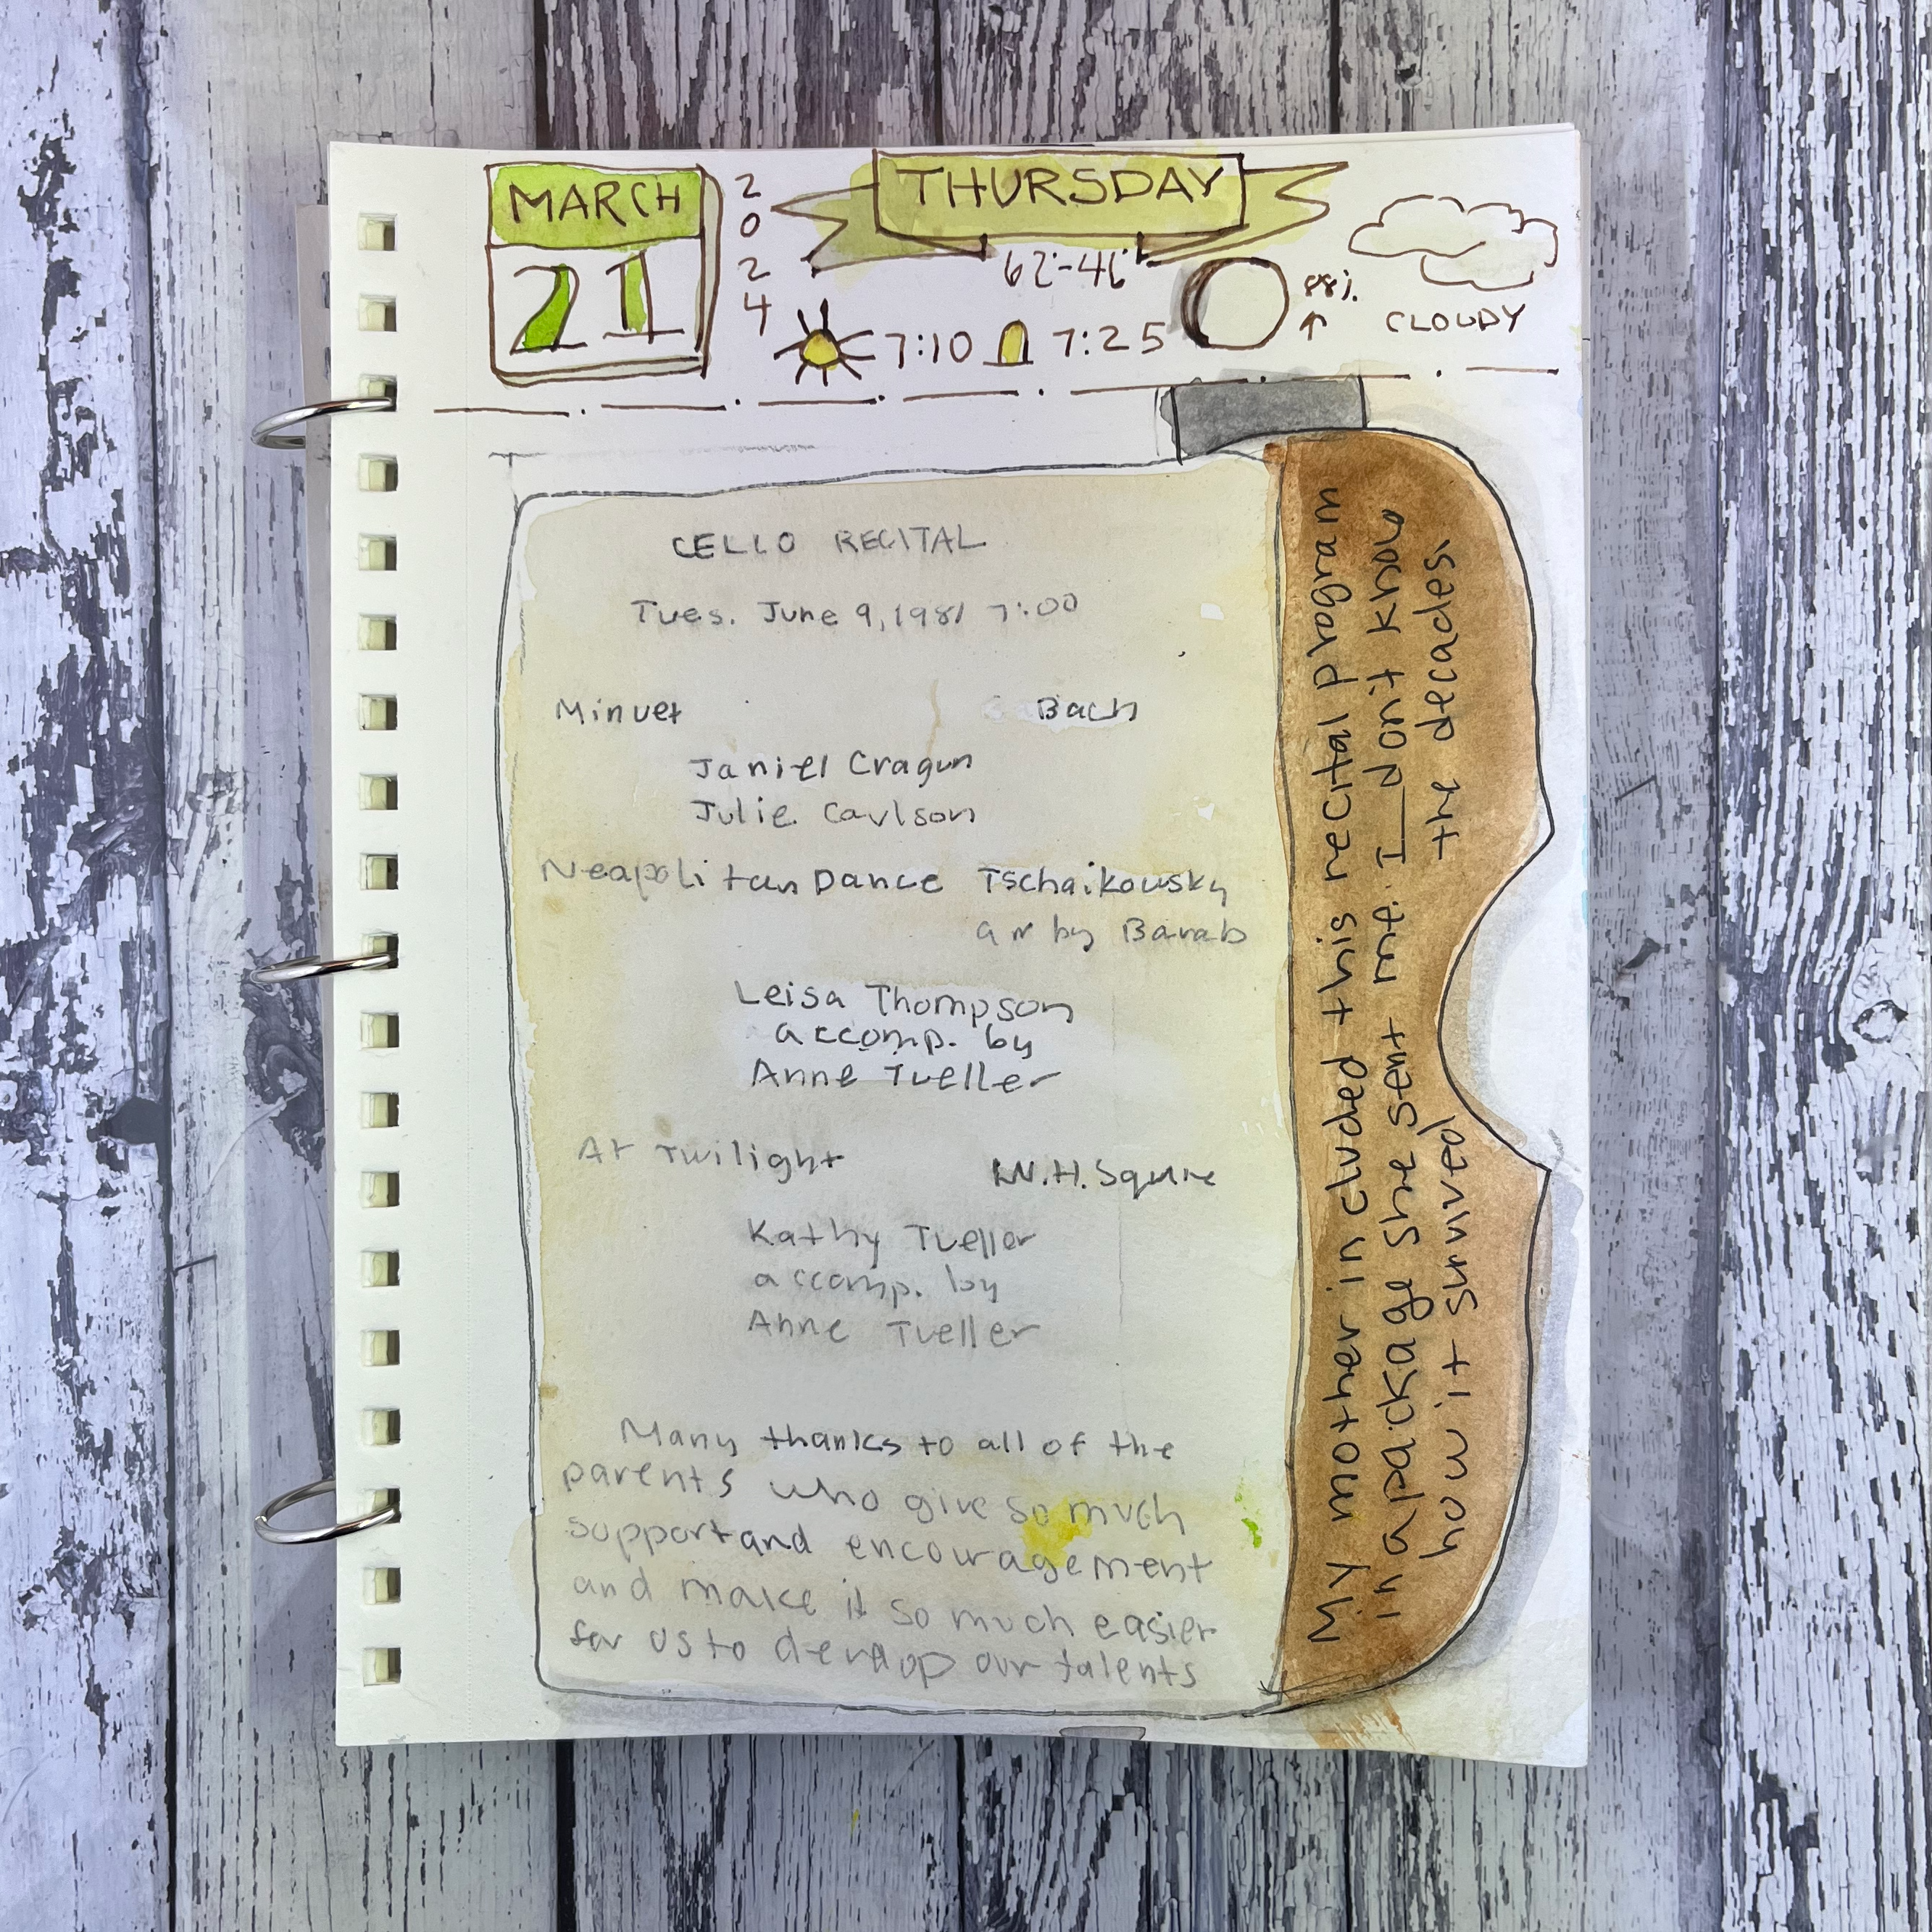 MARCH
21
2024
THURSDAY
62-46
7:10
7:25
88%
CLOUDY
CELLO RECITAL
Tues. June 9, 1981 7:00
Minuet Bach
Janiel Cragun
Julie Carlson
Neapolitan Dance Tschaikowsky
arr by Barab
Leisa Thompson
accomp. by
Anne Tueller
At Twilight W.H. Squire
Kathy Tueller
accomp. by
Anne Tueller
Many thanks to all of the
parents who give so much
support and encouragement
and make it so much easier
for us to develop our talents
My mother included this recital program
in a package she sent me. I don't know
how it survived the decades.